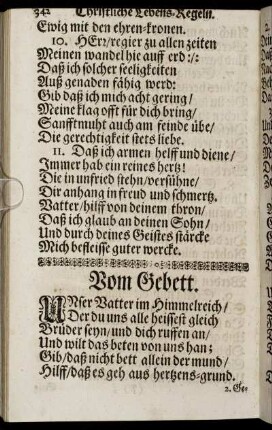 342 Christliche Lebens-Regeln.
Ewig mit den ehren-kronen.
10. HErr/regier zu allen zeiten
Meinen wandel hie auff erd:/:
Daß ich solcher seeligkeiten
Auß genaden fähig werd:
Gib daß ich mich acht gering/
Meine klag offt für dich bring/
Sanfftmuht auch am feinde übe/
Die gerechtigkeit stets liebe.
11. Daß ich armen helff und diene/
Immer hab ein reines hertz!
Die in unfried stehn/versühne/
Dir anhang in freud und schmertz.
Vatter/hilff von deinem thron/
Daß ich glaub an deinen Sohn/
Und durch deines Geistes stärcke
Mich befleisse guter wercke.
Vom Gebett.
UNser Vatter im Himmelreich/
Der du uns alle heissest gleich
Brüder seyn/und dich ruffen an/
Und wilt das beten von uns han;
Gib/daß nicht bett allein der mund/
Hilff/daß es geh aus hertzens-grund.
2. Ge-